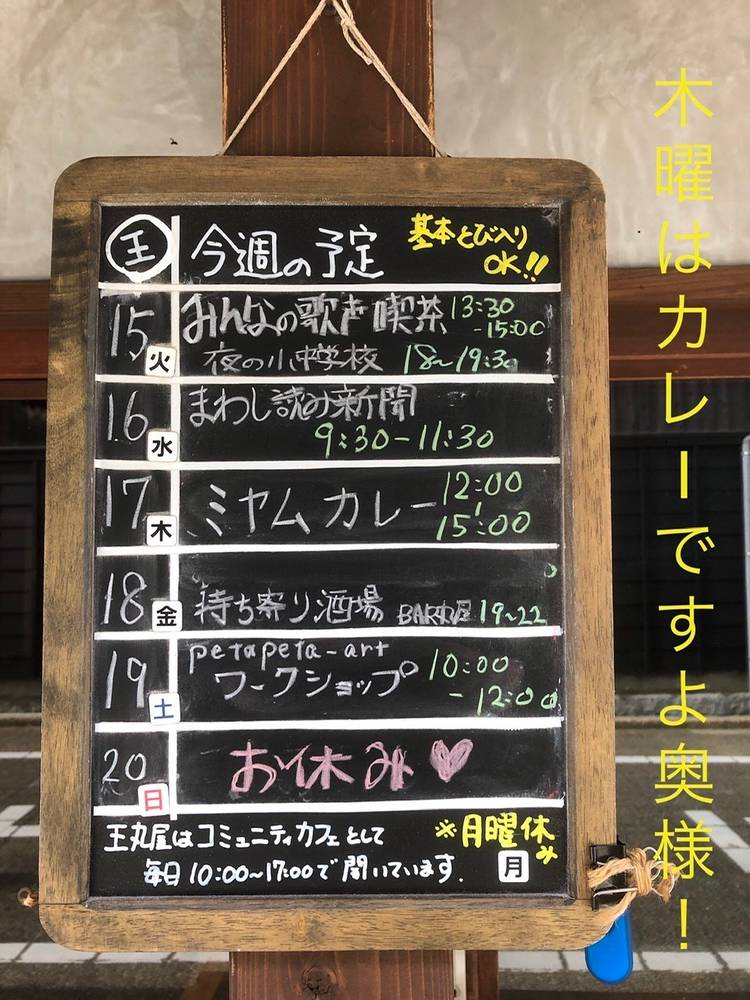 王 今週の予定
基本とび入り
OK!!
15 火 みんなの歌声喫茶 13:30
-15:00
夜の小中学校 18~19:30
16 水 まわし読み新聞
9:30-11:30
17 木 ミヤムカレー 12:00
~
15:00
18 金 持ち寄り酒場 19~22
19 土 petapeta-art
ワークショップ 10:00
-12:00
20 日 お休み♡
王丸屋はコミュニティカフェとして
毎日10:00~17:00で開いています.
※月曜休み
月
木曜はカレーですよ奥様!